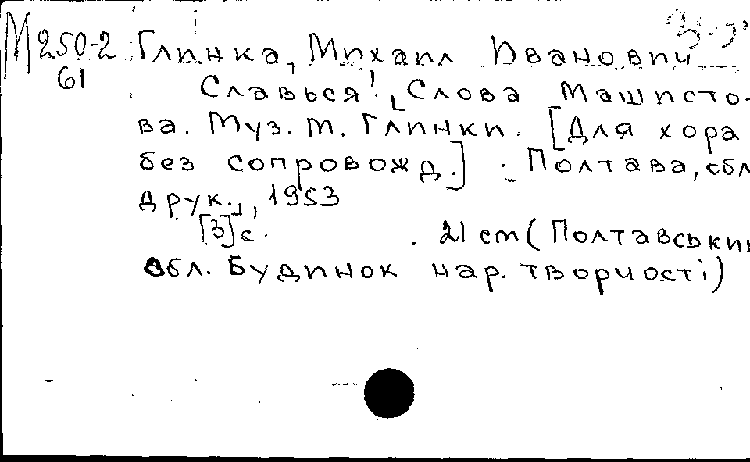 М250-2 Глинка, Михаил Иванович
61 Славься! [Слова Машисто-
ва. Муз. М. Глинки. [Для хора
без сопровожд.] Полтава, обл.
друк.], 1953
[3] с. 21 cm (Полтавський
обл. будинок нар. творчості)